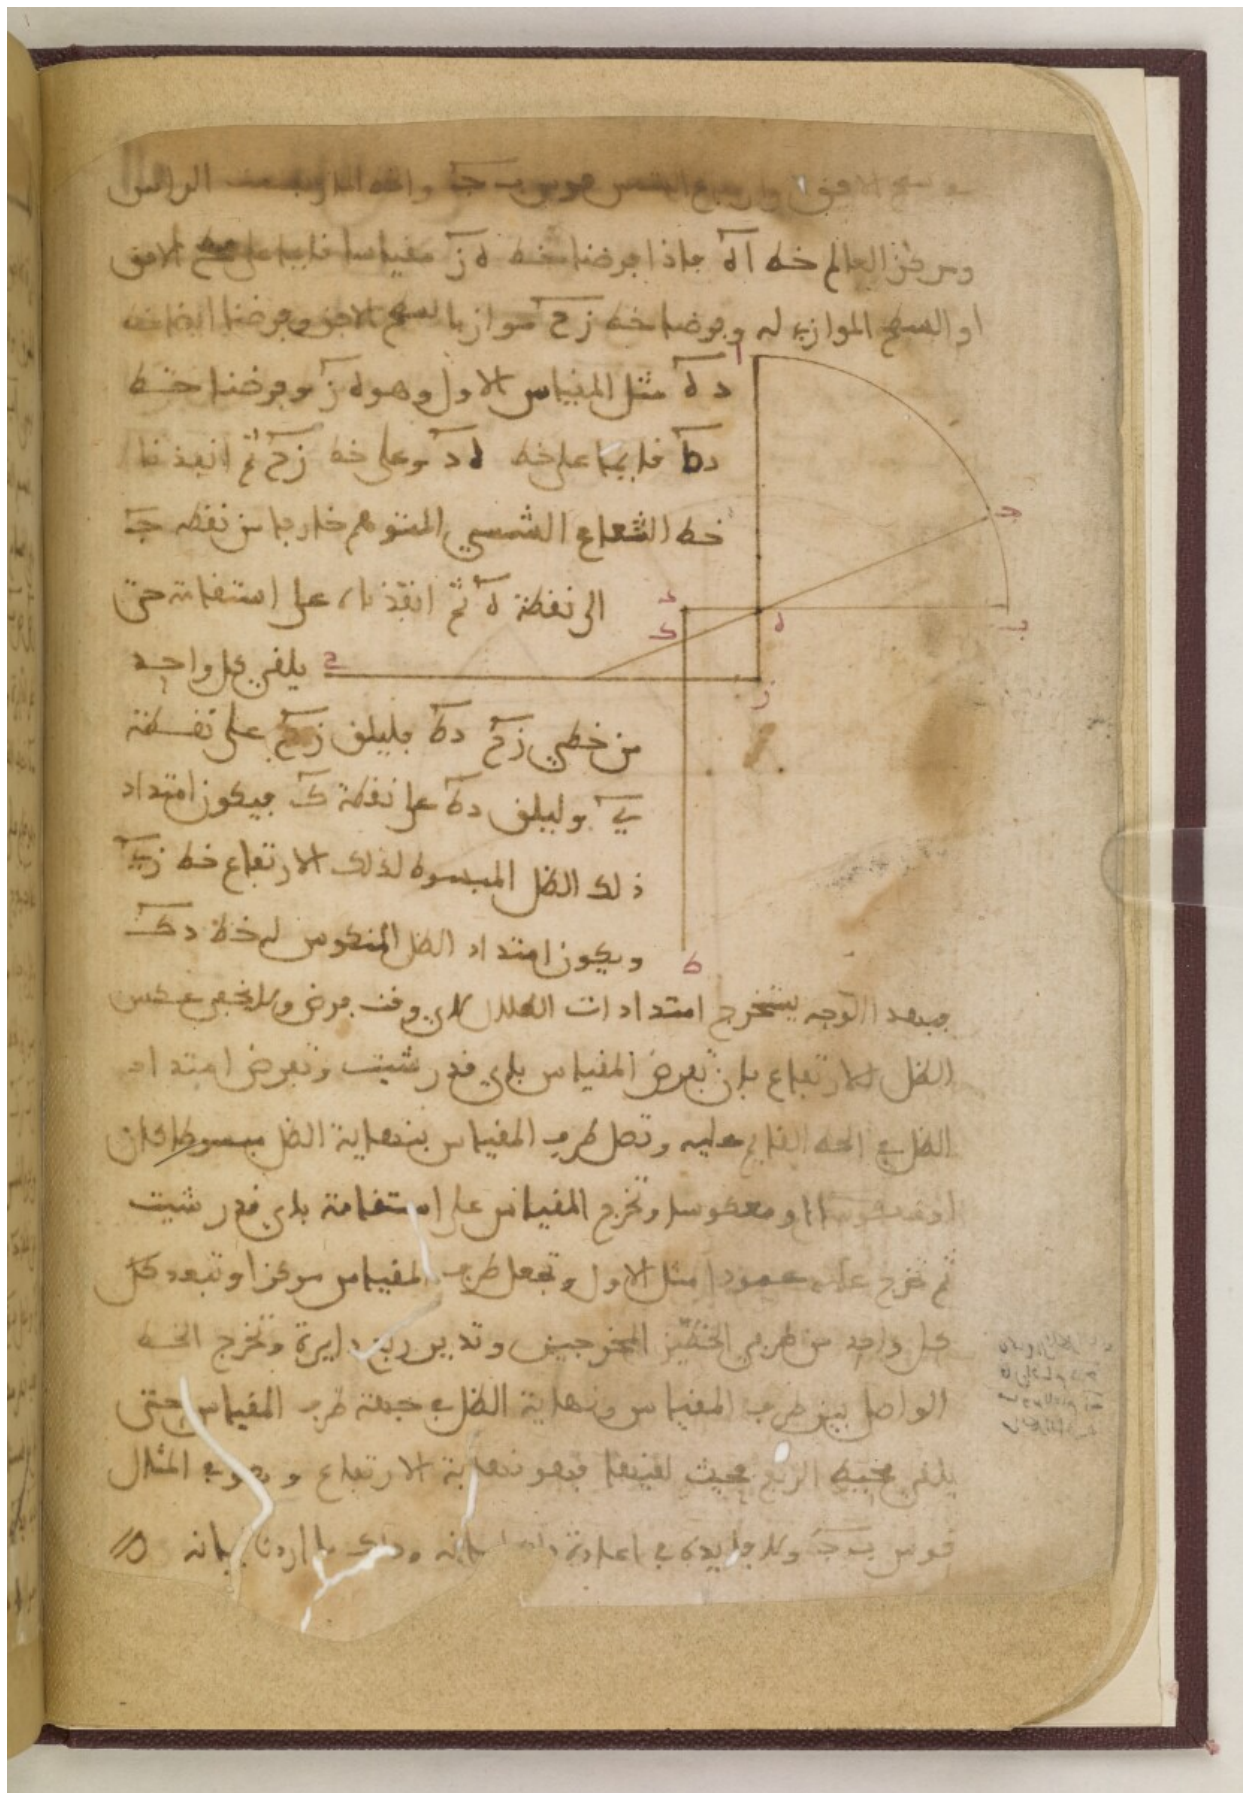 سطح الافق وارتفاع الشمس قوس ب ج الراس
ومركز العالم خط اه فاذا فرضنا خط ه ز مقياسا قايما على سطح الافق
او السطح الموازي له وفرضنا خط زح موازيا لسطح الافق وفرضنا ايضا خط
ده مثل المقياس الاول وهو ه ز وفرضنا خط
دط قايما على خط ه د وعلى خط زح ثم انفذنا
خط الشعاع الشمسي المتوهم خارجا من نقطه ج
الى نقطة ه ثم انفذناه على استقامة حتى
يلقى كل واحد
من خطي زح دط فليلق زح على نقطة
ي وليلق دط على نقطة ك فيكون امتداد
ذلك الظل المبسوط لذلك الارتفاع خط زي
ويكون امتداد الظل المنكوس له خط دك
فبهذا الوجه يستخرج امتدادات الظلال لاي وقت فرض ولا يخفى عكس
الظل للارتفاع بان تفرض المقياس باي قدر شيت وتفرض امتداد
الظل في الخط القايم عليه وتصل طرف المقياس بنهاية الظل مبسوطا كان
او معكوسا وتخرج المقياس على استقامة باي قدر شيت
ثم تخرج عليه عمودا مثل الاول وتجعل طرف المقياس مركزا وتبعد كل
كل واحد من طرفي الخطين المخرجين وتدير ربع دايرة وتخرج الخط
الواصل بين طرف المقياس ونهاية الظل في جهة طرف المقياس حتى
يلقى محيط الربع فحيث لقيها فهو نهاية الارتفاع وهو في المثال
قوس ب ج ولا فايدة في اعادة وذلك ما اردنا بيانه
ا
ج
ب
د
ه
ك
ح
ز
ط